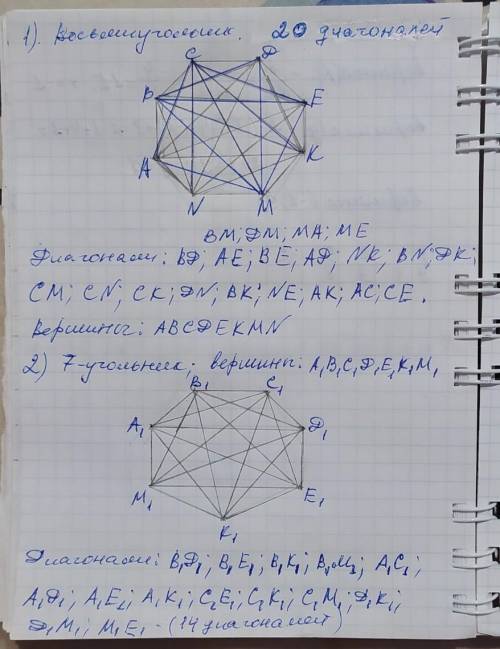 1). Восьмиугольник. 20 диагоналей
C D
B E
A K
N M
BM; DM; MA; ME
Диагонали: BD; AE; BE; AD; NK; BN; DK;
CM; CN; CK; DN; BK; NE; AK; AC; CE.
Вершины: ABCDEKMN
2) 7-угольник; вершины: A₁B₁C₁D₁E₁K₁M₁
B₁ C₁
A₁ D₁
M₁ E₁
K₁
Диагонали: B₁D₁; B₁E₁; B₁K₁; B₁M₁; A₁C₁;
A₁D₁; A₁E₁; A₁K₁; C₁E₁; C₁K₁; C₁M₁; D₁K₁;
D₁M₁; M₁E₁ - (14 диагоналей)